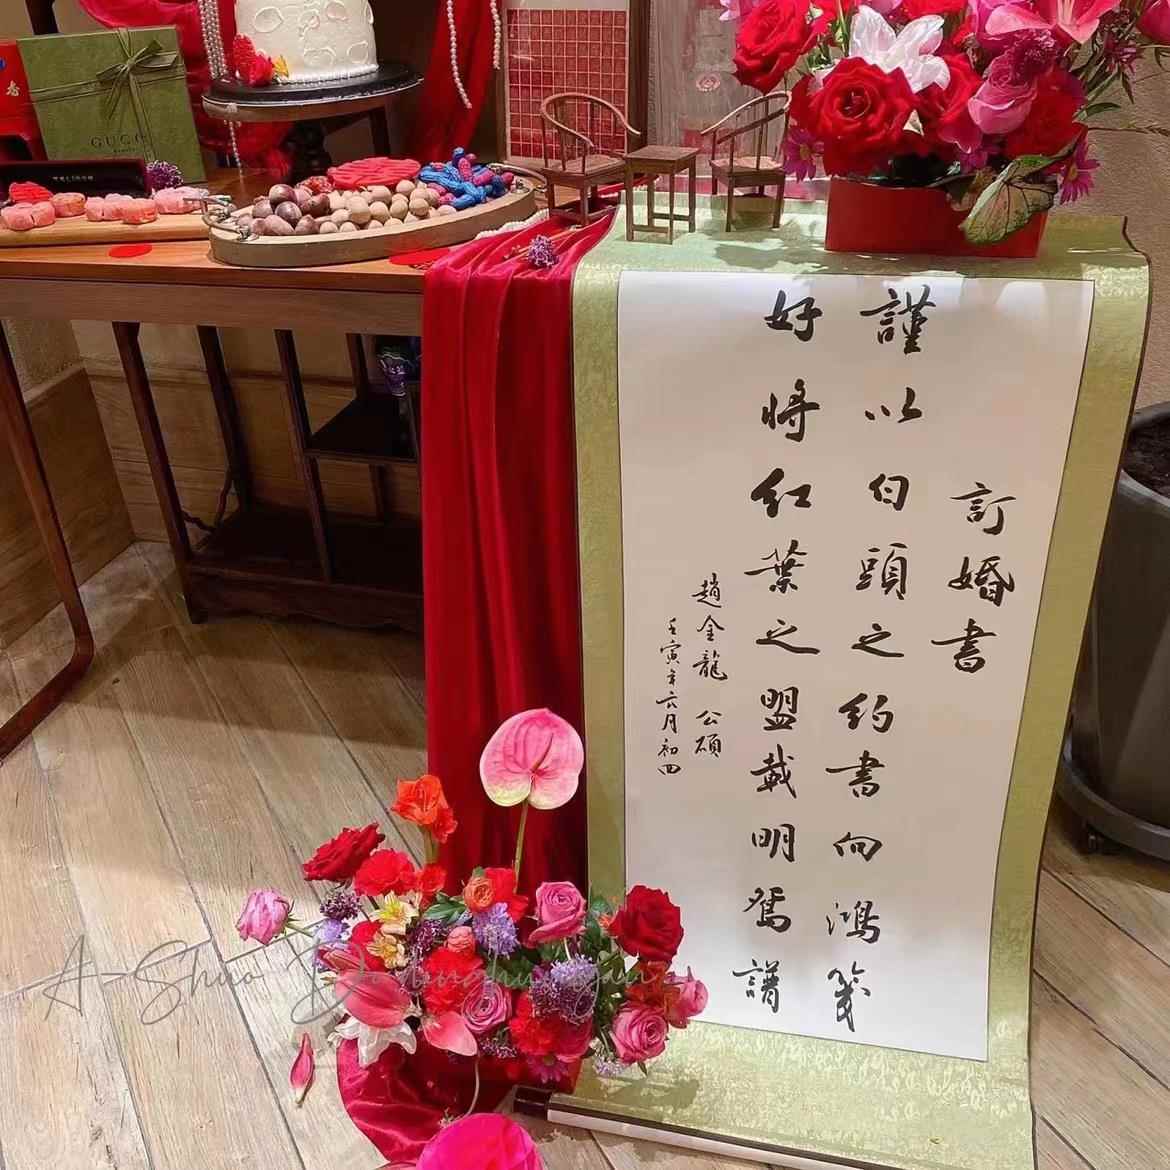 訂婚書
謹以白頭之約書向鴻箋
好將紅葉之盟載明鴛譜
趙金龍 公碩
壬寅年六月初四
GUCCI